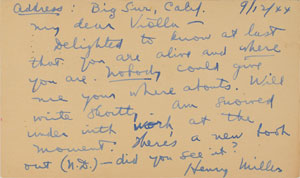 Address: Big Sur, Calif. 9/12/44
My dear Viola —
Delighted to know at last
that you are alive and where
you are. Nobody could give
me your where abouts. Will
write shortly. am snowed
under with work at the
moment. There's a new book
out (N.D.) — did you see it?
Henry Miller